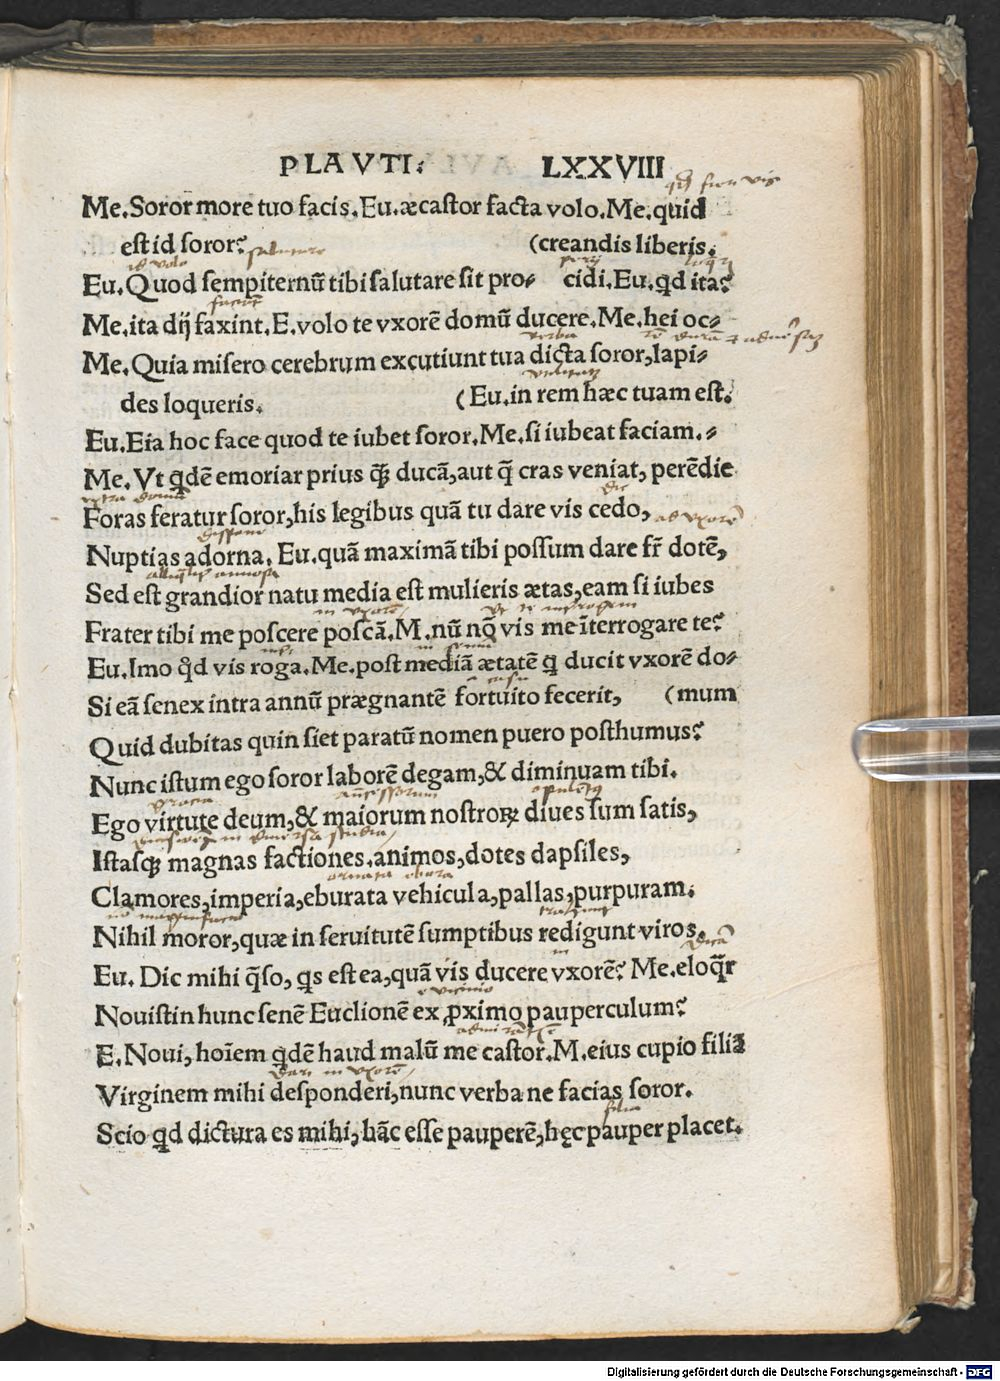 PLAVTI: LXXVIII
Me.Soror more tuo facis.Eu.æcastor facta volo.Me.quid
est id soror? (creandis liberis.
salutare
id volo
Eu.Quod sempiternū tibi salutare sit pro- cidi.Eu.qd ita?
Me.ita dij faxint.E.volo te vxorē domū ducere.Me.hei oc-
verba
Me.Quia misero cerebrum excutiunt tua dicta soror,lapi-
des loqueris. (Eu.in rem hæc tuam est.
Eu.Eia hoc face quod te iubet soror.Me.si iubeat faciam.-
Me.Vt qdē emoriar prius qȝ ducā,aut q̄ cras veniat, perēdie
extra domū
Foras feratur soror,his legibus quā tu dare vis cedo,
Nuptias adorna. Eu.quā maximā tibi possum dare fr̄ dotē,
Sed est grandior natu media est mulieris ætas,eam si iubes
in vxorē
Frater tibi me poscere poscā.M.nū nō vis me īterrogare te?
Eu.Imo qd vis roga.Me.post mediā ætatē q ducit vxorē do-
Si eā senex intra annū prægnantē fortuito fecerit, (mum
Quid dubitas quin siet paratū nomen puero posthumus?
Nunc istum ego soror laborē degam,& diminuam tibi.
gracia
Ego virtute deum,& maiorum nostroꝝ diues sum satis,
Istasqȝ magnas factiones.animos,dotes dapsiles,
Clamores,imperia,eburata vehicula,pallas,purpuram.
Nihil moror,quæ in seruitutē sumptibus redigunt viros.
Eu. Dic mihi q̄so, qs est ea,quā vis ducere vxorē? Me.eloq̄r
e vicinio
Nouistin hunc senē Euclionē ex ꝓximo pauperculum?
E. Noui, hoīem qdē haud malū me castor.M.eius cupio filiā
dari in vxorē
Virginem mihi desponderi,nunc verba ne facias soror.
filia
Scio qd dictura es mihi,hāc esse pauperē,hęc pauper placet.
Digitalisierung gefördert durch die Deutsche Forschungsgemeinschaft - DFG